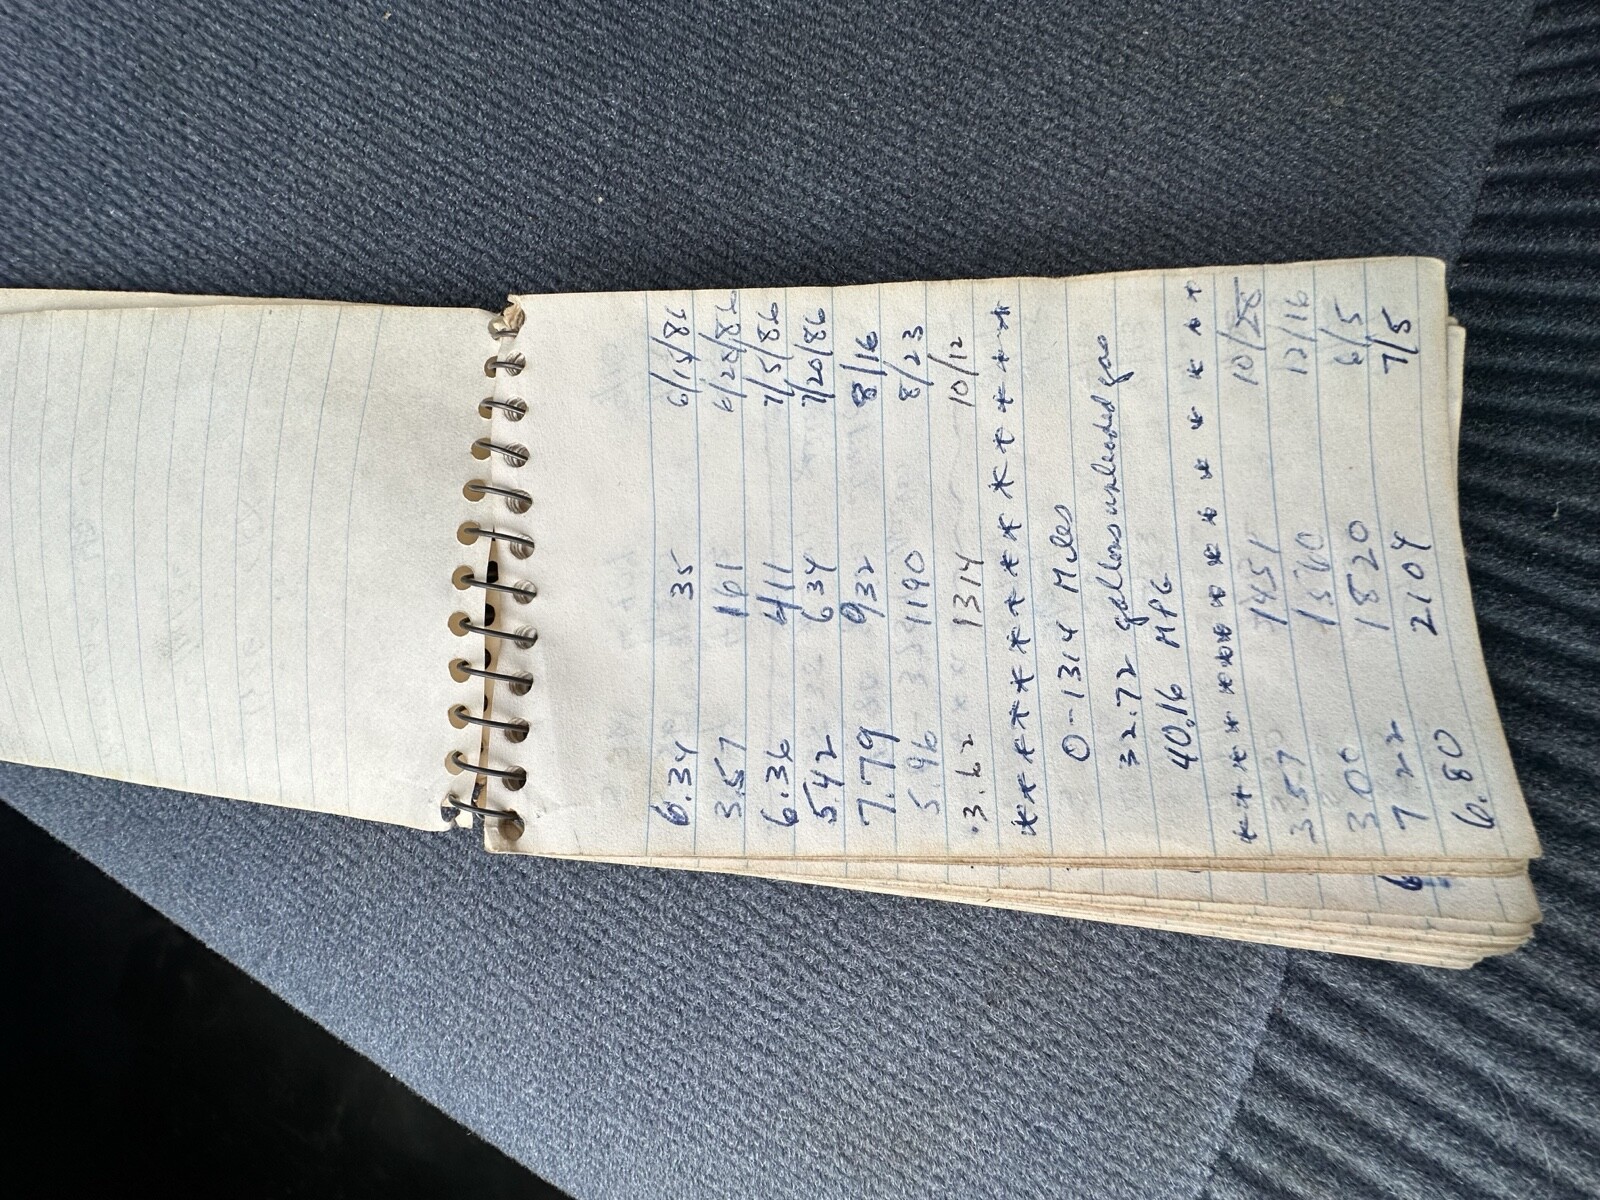 6.34 35 6/15/86
3.57 161 6/28/86
6.36 411 7/5/86
5.42 634 7/20/86
7.79 932 8/16
5.96 1190 8/23
3.62 1314 10/12
* * * * * * * * * * * * * * *
0-1314 Miles
32.72 gallons unleaded gas
40.16 MPG
* * * * * * * * * * * * * * * * *
3.57 1451 10/28
3.00 1560 12/16
7.22 1820 6/5
6.80 2104 7/5